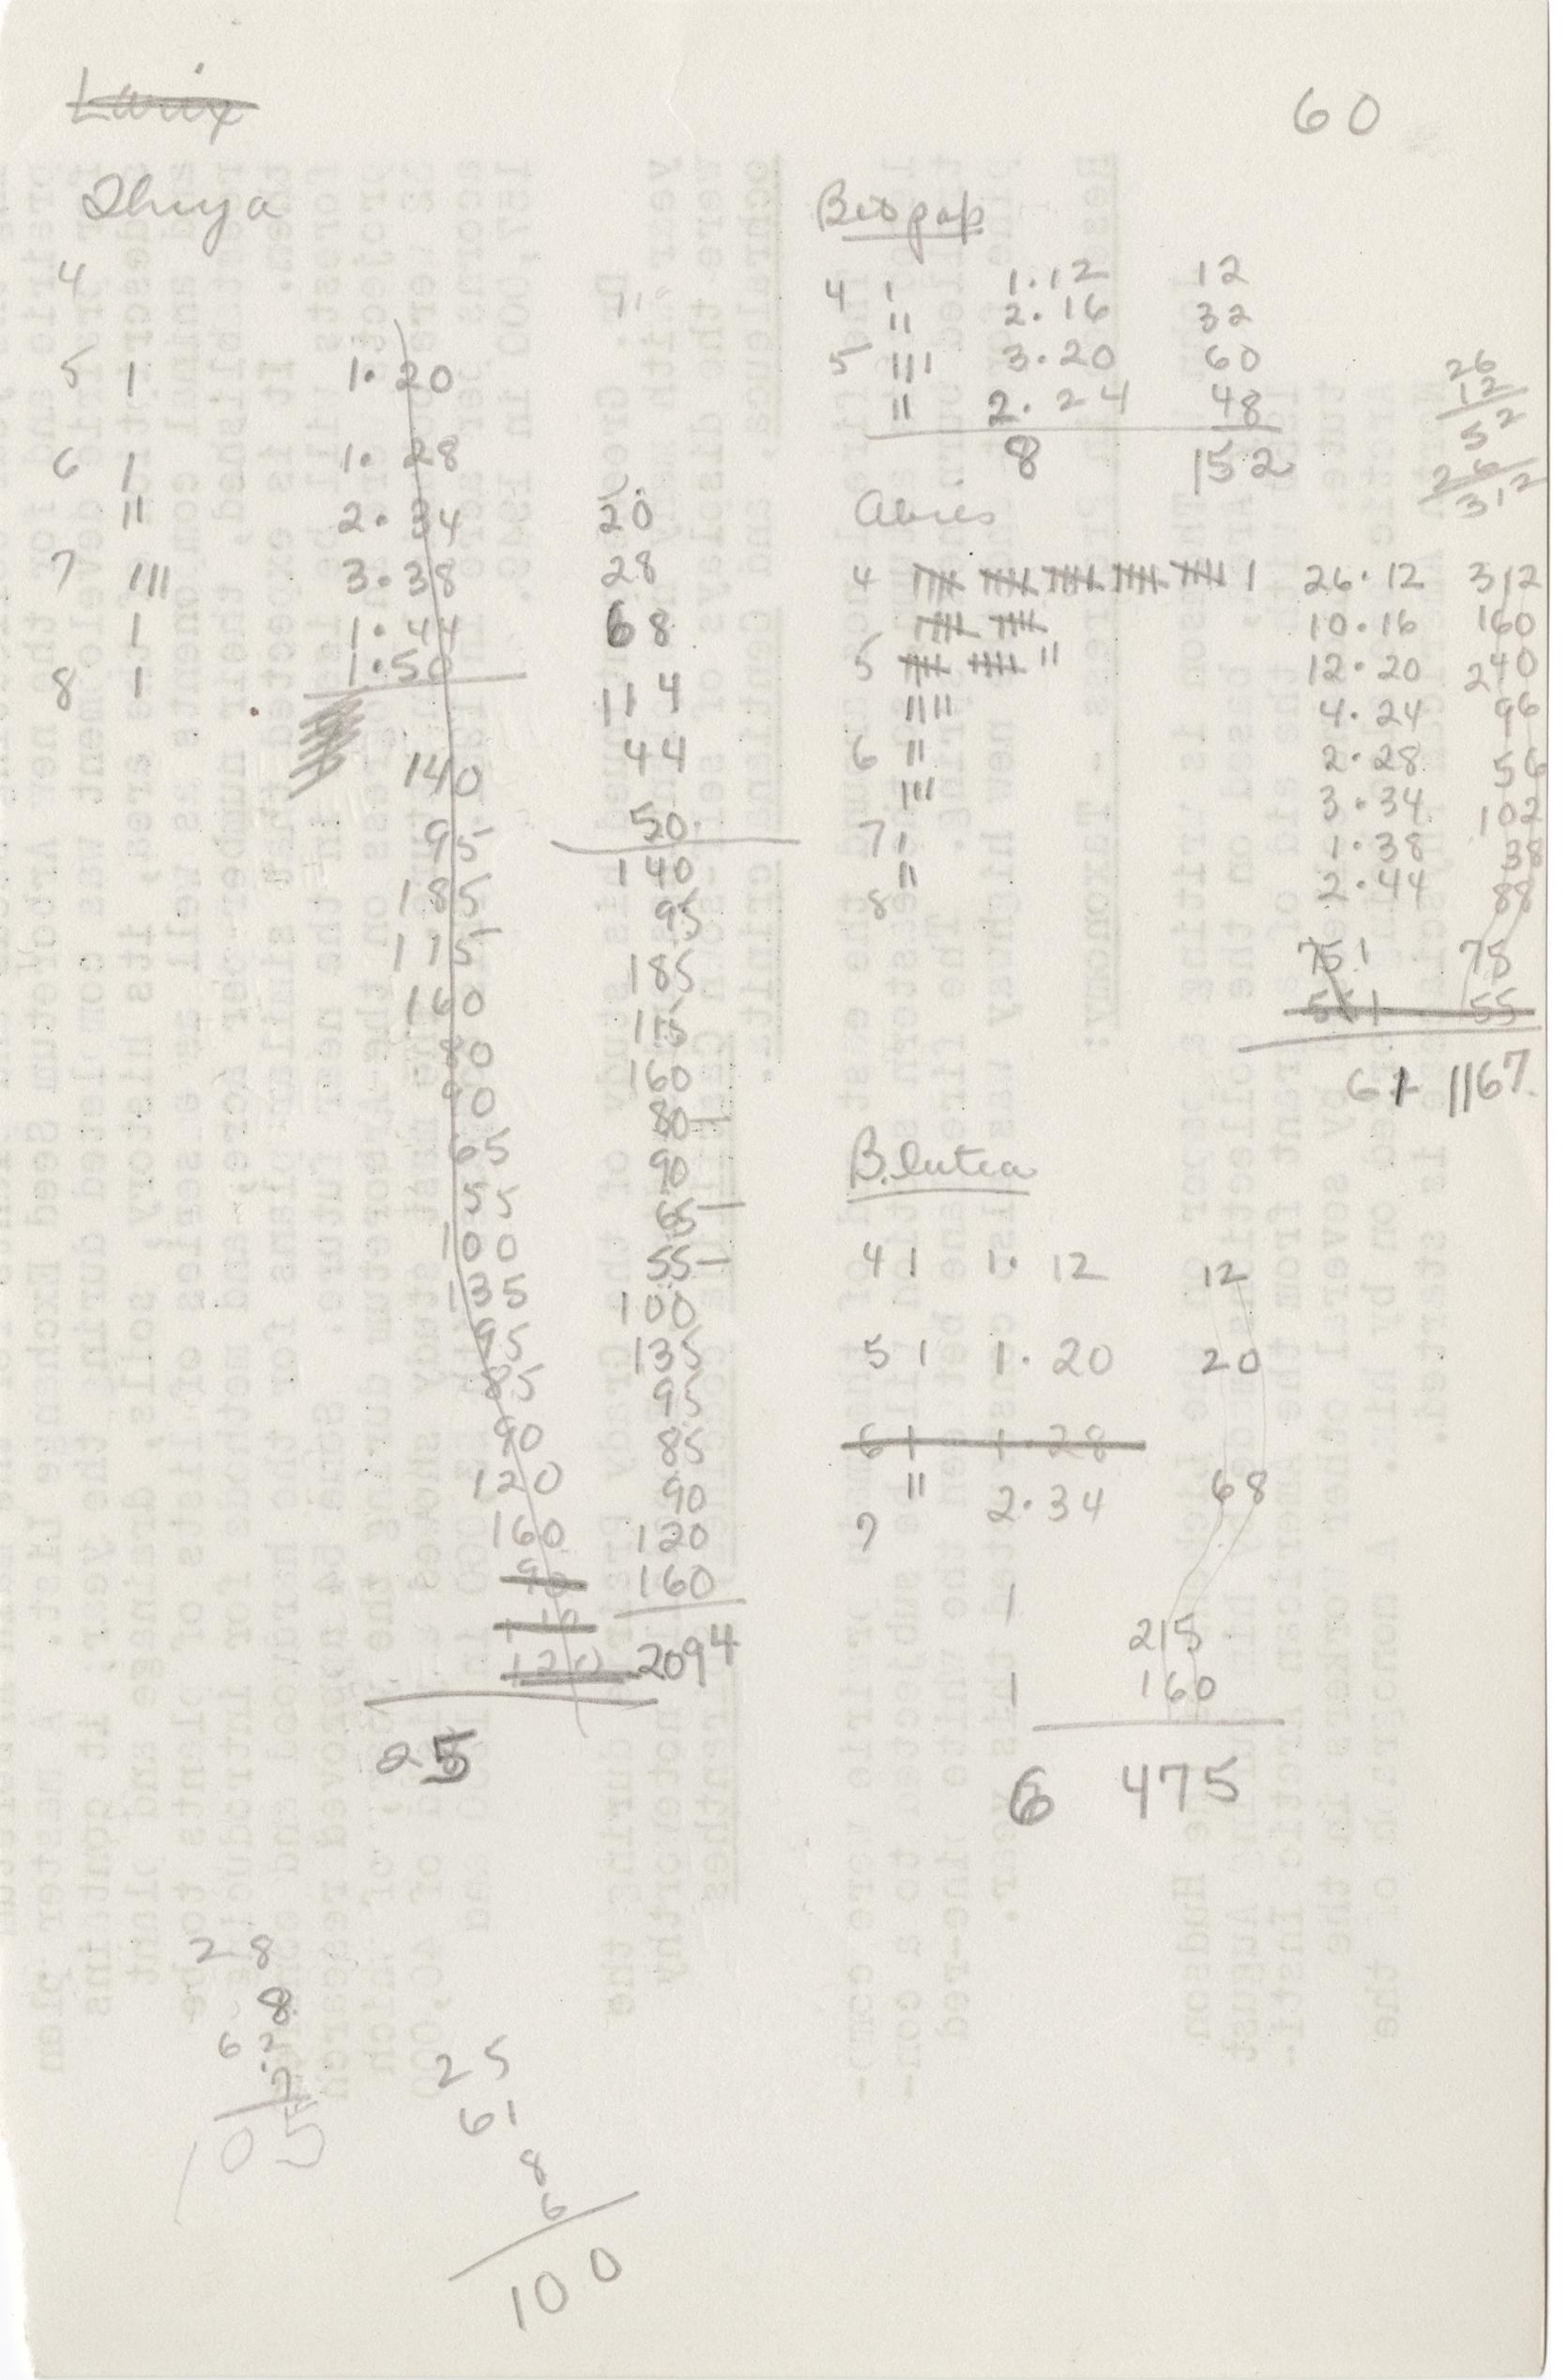 Larix
60
Thuya
4
5 I 1·20
6 I 1·28
II 2·34
7 III 3·38
I 1·44
8 I 1·50
140
95
185
115
160
80
90
65
55
100
135
95
85
90
120
160
90
110
120
25
20
28
68
114
44
50
140
95
185
115
160
80 —
90
65 —
55 —
100
135
95
85
90
120
160
2094
28
8
62
7
105
25
61
8
6
100
Bet pap
4 I 1·12 12
II 2·16 32
5 III 3·20 60
II 2·24 48
8 152
26
12
52
26
312
Abies
4 IIII IIII IIII IIII IIII I 26·12 312
IIII IIII 10·16 160
5 IIII IIII II 12·20 240
IIII 4·24 96
6 II 2·28 56
III 3·34 102
7 I 1·38 38
II 2·44 88
8
75 1 75
55 1 55
61 1167
B. lutea
4 I 1·12 12
5 I 1·20 20
6 I 1·28
II 2·34 68
7
1 215
1 160
6 475